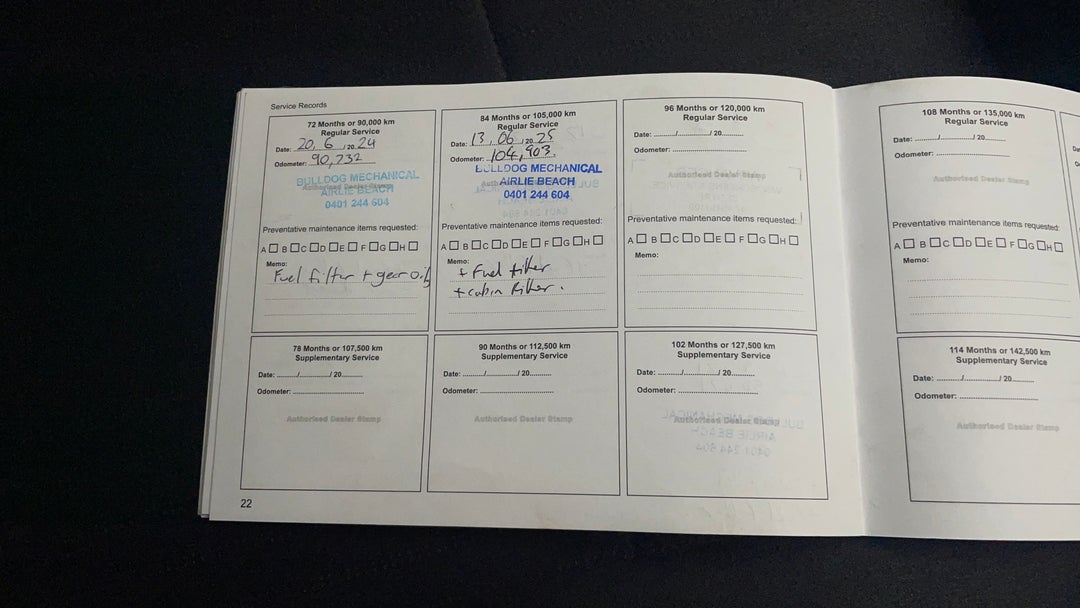 Service Records
72 Months or 90,000 km
Regular Service
Date: 20, 6, 20 24
Odometer: 90,232
Authorised Dealer Stamp
BULLDOG MECHANICAL
AIRLIE BEACH
0401 244 604
Preventative maintenance items requested:
A B C D E F G H
Memo:
Fuel filter + gear oils
84 Months or 105,000 km
Regular Service
Date: 13, 06, 20 25
Odometer: 104,903
BULLDOG MECHANICAL
AIRLIE BEACH
0401 244 604
Preventative maintenance items requested:
A B C D E F G H
Memo:
+ Fuel filter
+ cabin filter.
96 Months or 120,000 km
Regular Service
Date: ........../................/ 20..........
Odometer: ..............................
Authorised Dealer Stamp
Preventative maintenance items requested:
A B C D E F G H
Memo:
108 Months or 135,000 km
Regular Service
Date: ........../................/ 20..........
Odometer: ..............................
Authorised Dealer Stamp
Preventative maintenance items requested:
A B C D E F G H
Memo:
78 Months or 107,500 km
Supplementary Service
Date: ........../................/ 20..........
Odometer: ..............................
Authorised Dealer Stamp
90 Months or 112,500 km
Supplementary Service
Date: ........../................/ 20..........
Odometer: ..............................
Authorised Dealer Stamp
102 Months or 127,500 km
Supplementary Service
Date: ........../................/ 20..........
Odometer: ..............................
Authorised Dealer Stamp
114 Months or 142,500 km
Supplementary Service
Date: ........../................/ 20..........
Odometer: ..............................
Authorised Dealer Stamp
22